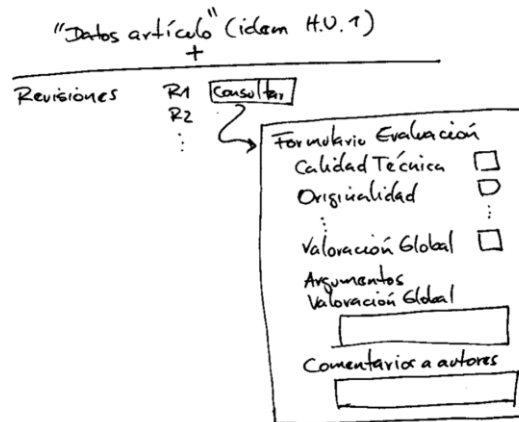 "Datos artículo" (idem H.U.1)
+
Revisiones R1 Consultar
R2
⋮
Formulario Evaluación
Calidad Técnica
Originalidad
⋮ ⋮
Valoración Global
Argumentos
Valoración Global
Comentarios a autores